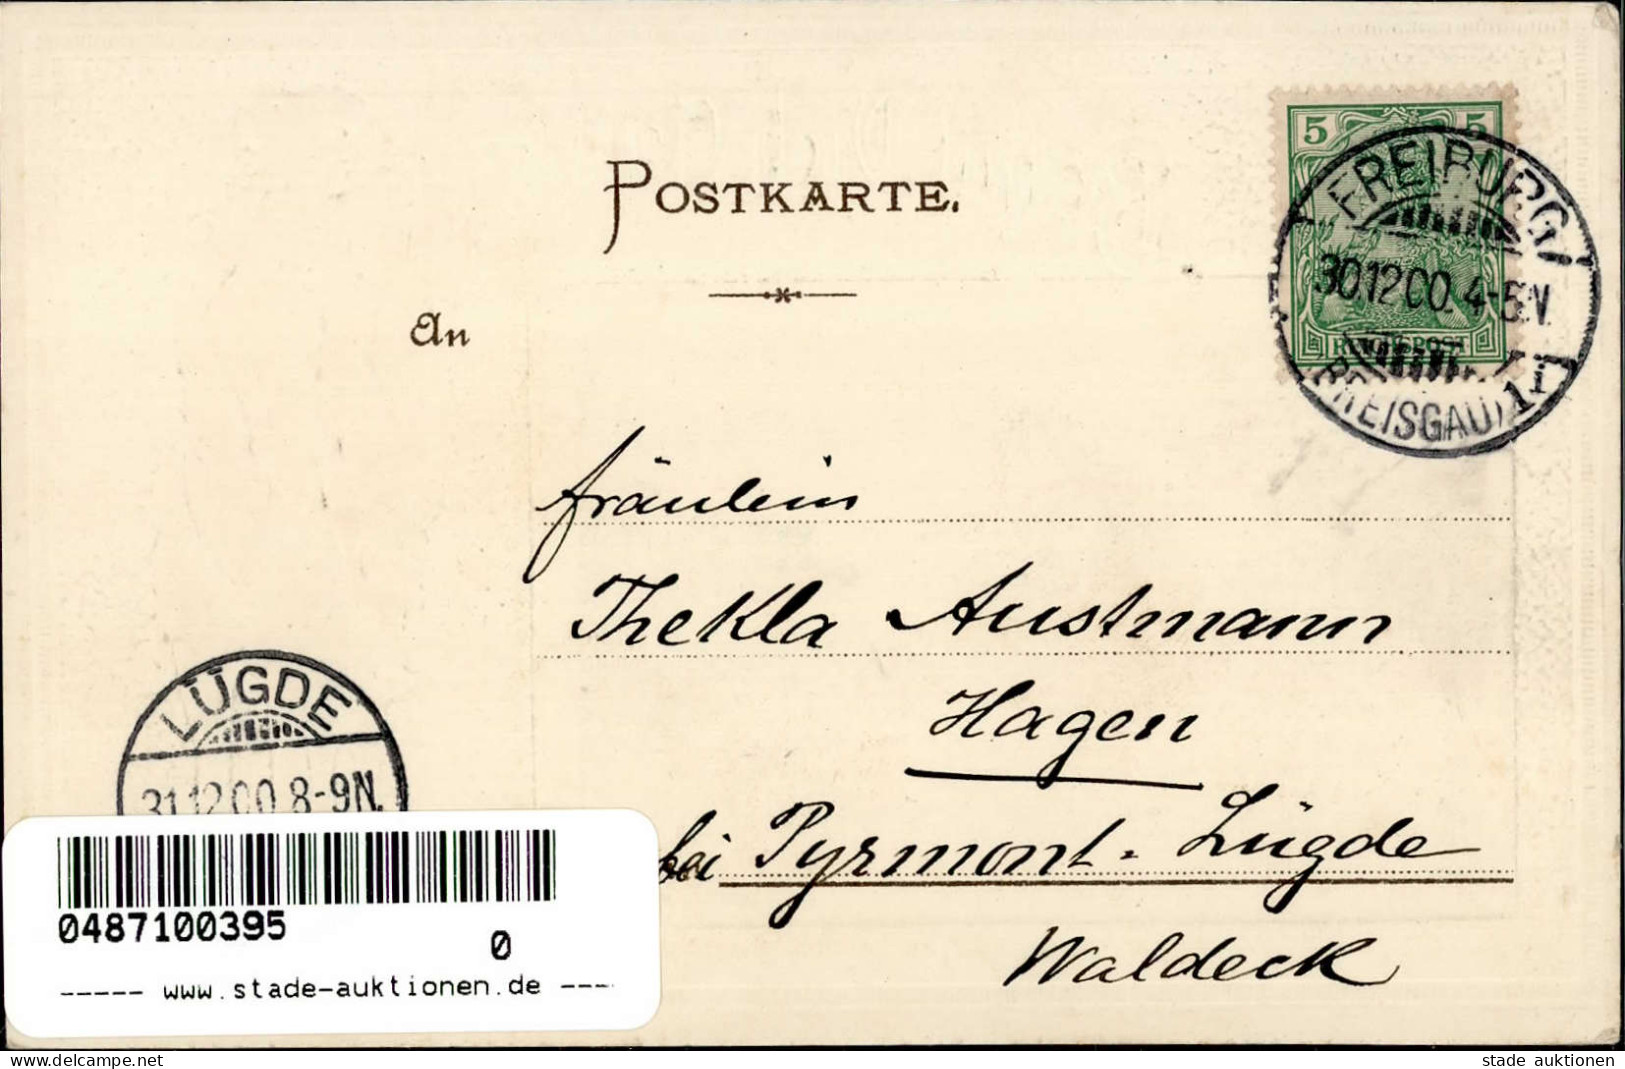 POSTKARTE.
5 5
FREIBURG
30.12.00. 4-5.N.
REICHSPOST
(BREISGAU) 1
An
fräulein
Thekla Austmann
Hagen
bei Pyrmont-Lügde
Waldeck
LÜGDE
31.12.00 8-9N.
0487100395
0
----- www.stade-auktionen.de ----
www.delcampe.net
stade auktionen